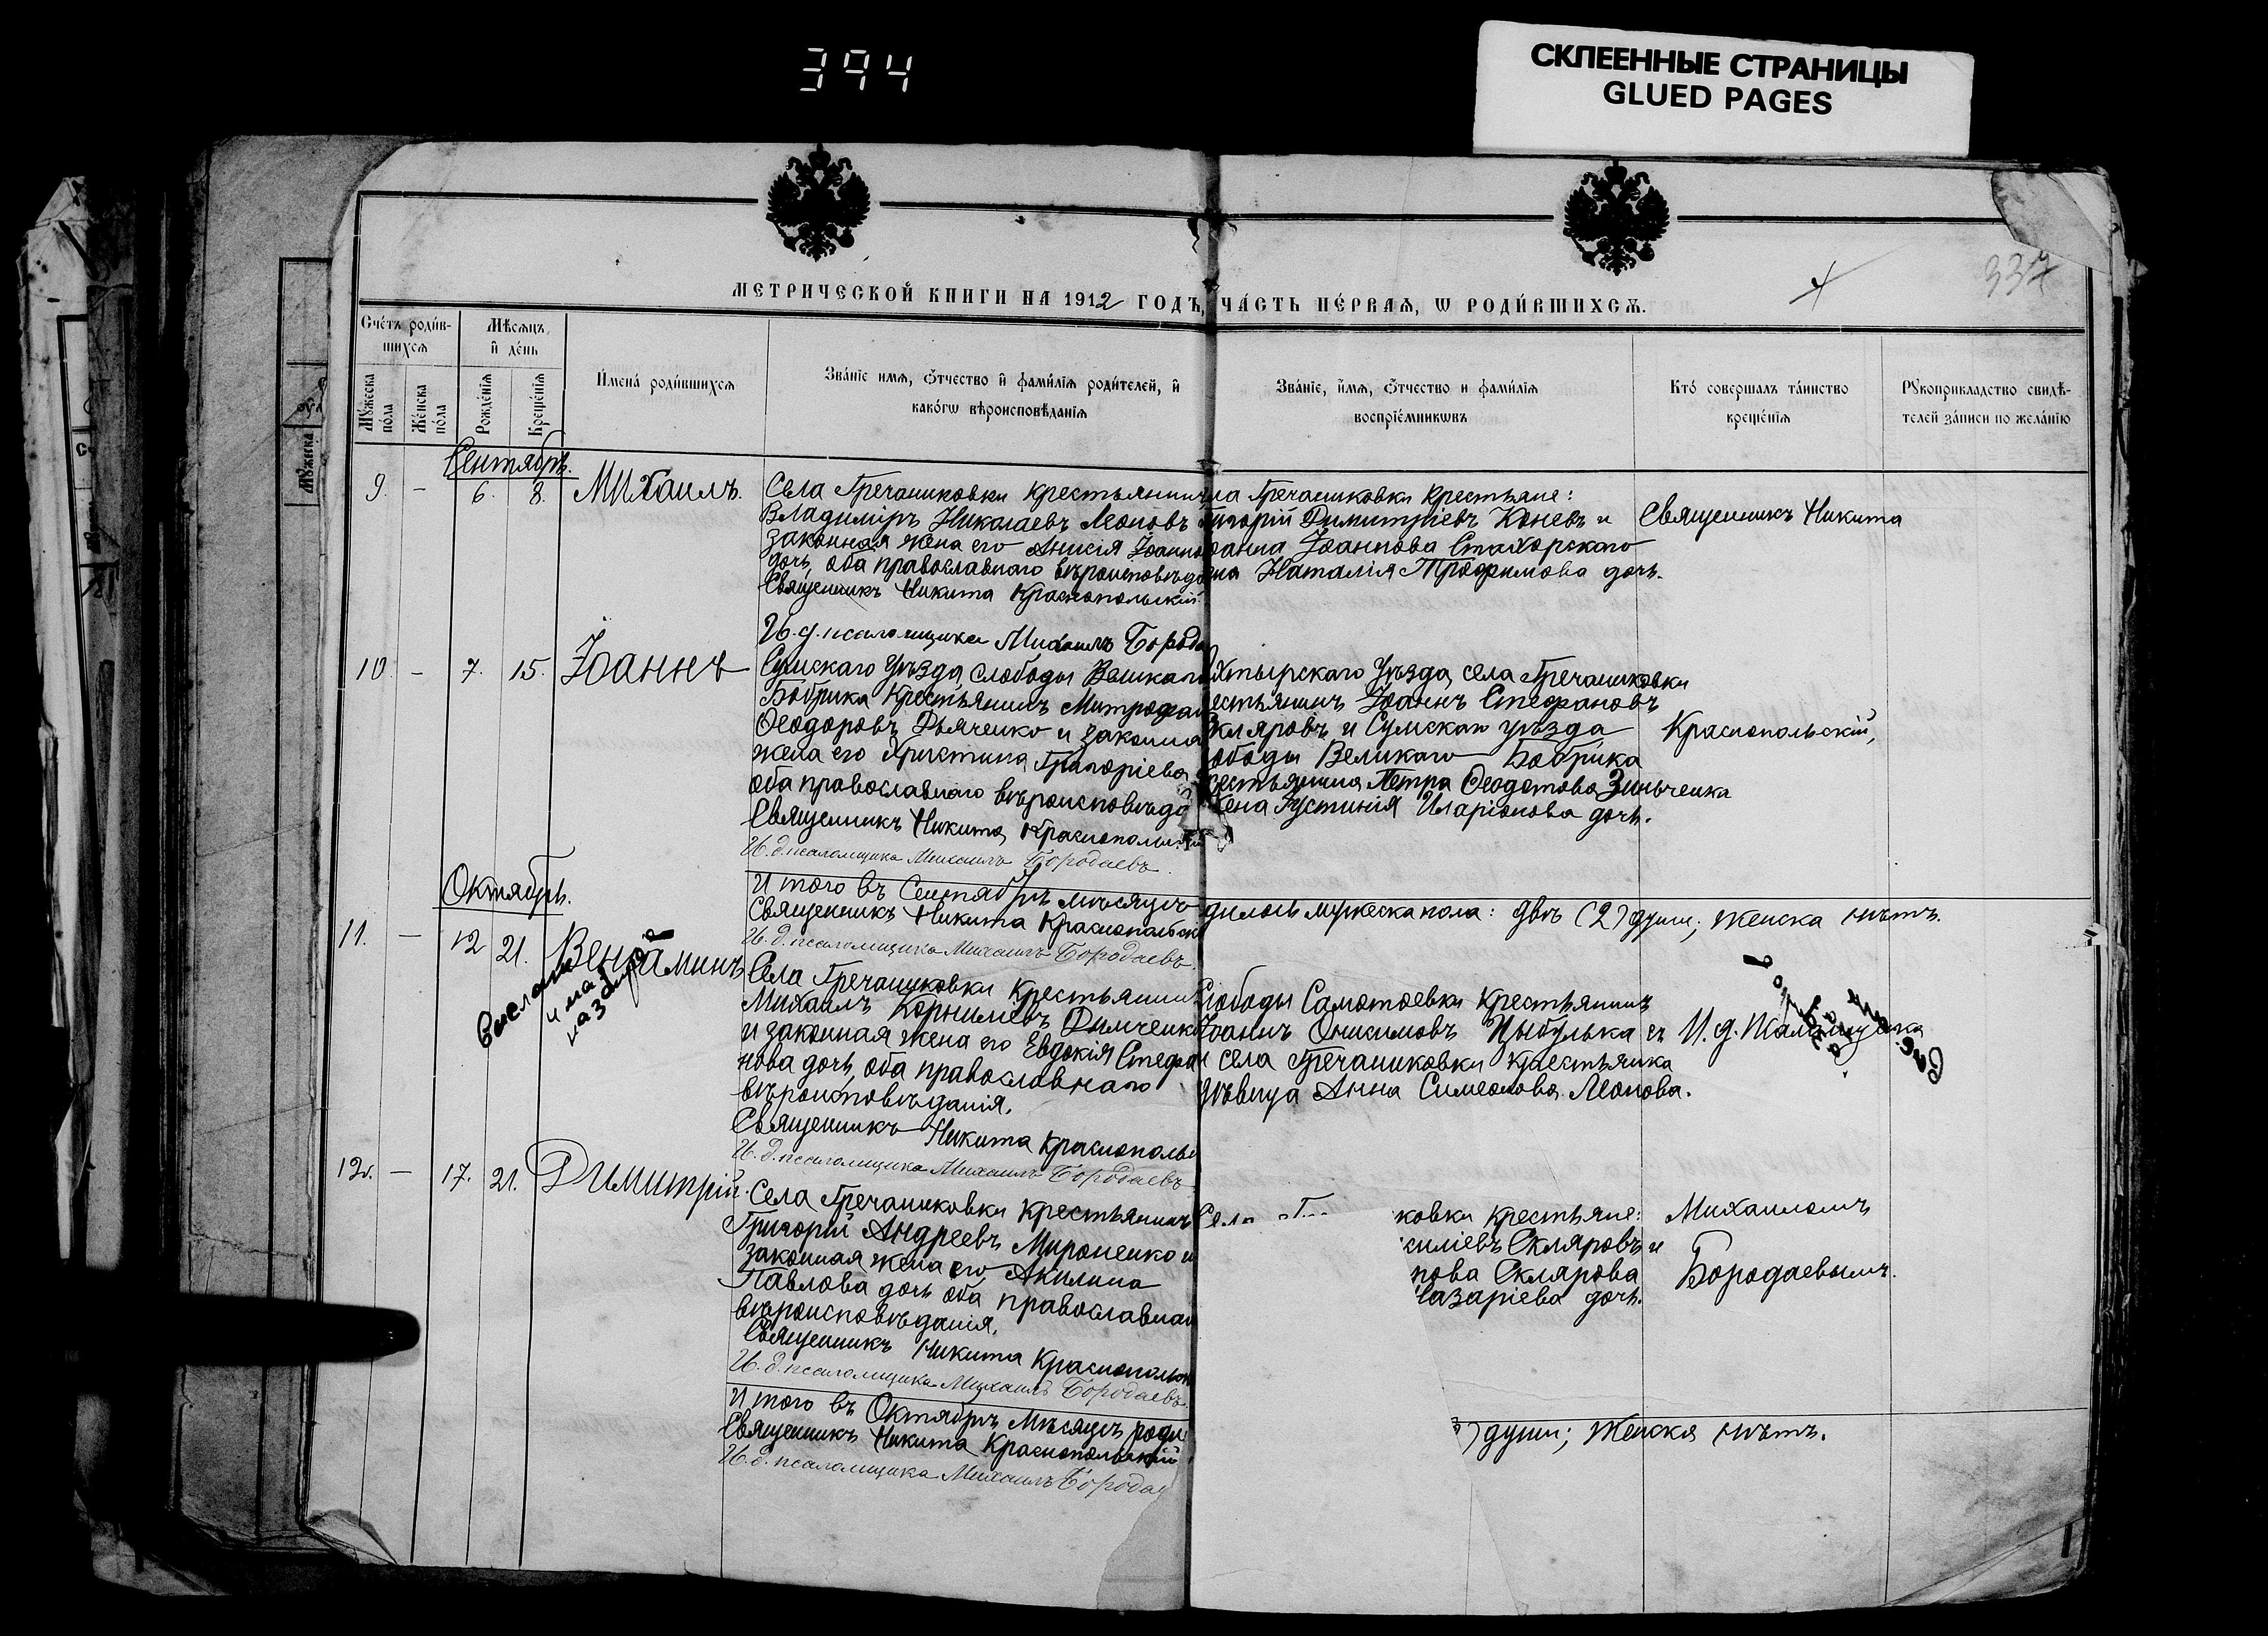 394
СКЛЕЕННЫЕ СТРАНИЦЫ
GLUED PAGES
337
МЕТРИЧЕСКОЙ КНИГИ НА 1912 ГОДЪ, ЧА́СТЬ ПЕ́РВАѦ, Ѡ РОДИ́ВШИХСѦ.
Счéтъ роди́в-
шихсѧ
Мѣсѧцъ
и҆ дéнь
Мꙋ́жеска
пóла
Жéнска
пóла
Рождéнїѧ
Крещéнїѧ
И҆мена́ роди́вшихсѧ
Зва́нїе имѧ, ѻ҆́тчество и҆ фами́лїѧ роди́телей, и҆
како́гѡ вѣроисповѣ́данїѧ
Зва́нїе, и҆́мѧ, ѻ҆́тчество и фами́лїѧ
воспрїе́мникѡвъ
Кто́ совершалъ та́инство
креще́нїѧ
Рꙋкоприкладство свидѣ́-
телей за́писи по жела́нїю
Сентябрь.
9. - 6. 8. Михаилъ.
Села Гречаниковки крестьянинъ
Владиміръ Николаевъ Леоновъ
законная жена его Анисія Іоанно
дочь, оба православнаго вѣроисповѣда
Священникъ Никита Краснопольскій
И. д. псаломщика Михаилъ Борода
ла Гречаниковки крестьяне:
игорій Димитріевъ Коневъ и
Іоаннова Стахорскаго
на Наталія Трофимова дочь.
Священникъ Никита
10 - 7. 15. Іоаннъ
Сумскаго уѣзда, слободы Великаго
Бобрика крестьянинъ Митрофан
Ѳеодоровъ Дьяченко и законна
жена его Христина Григоріева
оба православнаго вѣроисповѣда
Священникъ Никита Краснопольскій
И. д. псаломщика Михаилъ Бородаевъ.
хтырскаго уѣзда, села Гречаниковки
естьянинъ Іоаннъ Стефановъ
Скляровъ и Сумскаго уѣзда
ободы Великаго Бобрика
рестьянина Петра Ѳеодотова Зинченка
жена Іустинія Иларіонова дочь.
Краснопольскій,
Итого въ Сентябрѣ мѣсяцѣ
дилось мужеска пола: двѣ (2) души; женска нѣтъ.
Священникъ Никита Краснопольск
И. д. псаломщика Михаилъ Бородаевъ.
Октябрь.
11. - 12 21. Веніаминъ
Села Гречаниковки крестьянинъ
Михаилъ Корниліевъ Димченко
и законная жена его Евдокія Стефа
нова дочь, оба православнаго
вѣроисповѣданія.
Священникъ Никита Краснополь
И. д. псаломщика Михаилъ Бородаевъ
Слободы Самотоевки крестьянинъ
Іоаннъ Онисимовъ Цыбулька и
села Гречаниковки крестьянка
дѣвица Анна Симеонова Леонова.
И. д. псаломщика
12. - 17. 21. Димитрій.
Села Гречаниковки крестьянинъ
Григорій Андреевъ Мироненко и
законная жена его Акилина
Павлова дочь оба православнаго
вѣроисповѣданія.
Священникъ Никита Краснопольск
И. д. псаломщика Михаилъ Бородаевъ.
Села
ковки крестьяне:
силіевъ Скляровъ и
нова Склярова
Назаріева дочь.
Михаиломъ
Бородаевымъ.
Итого въ Октябрѣ мѣсяцѣ роди
) души; женска нѣтъ.
Священникъ Никита Краснопольскій
И. д. псаломщика Михаилъ Борода